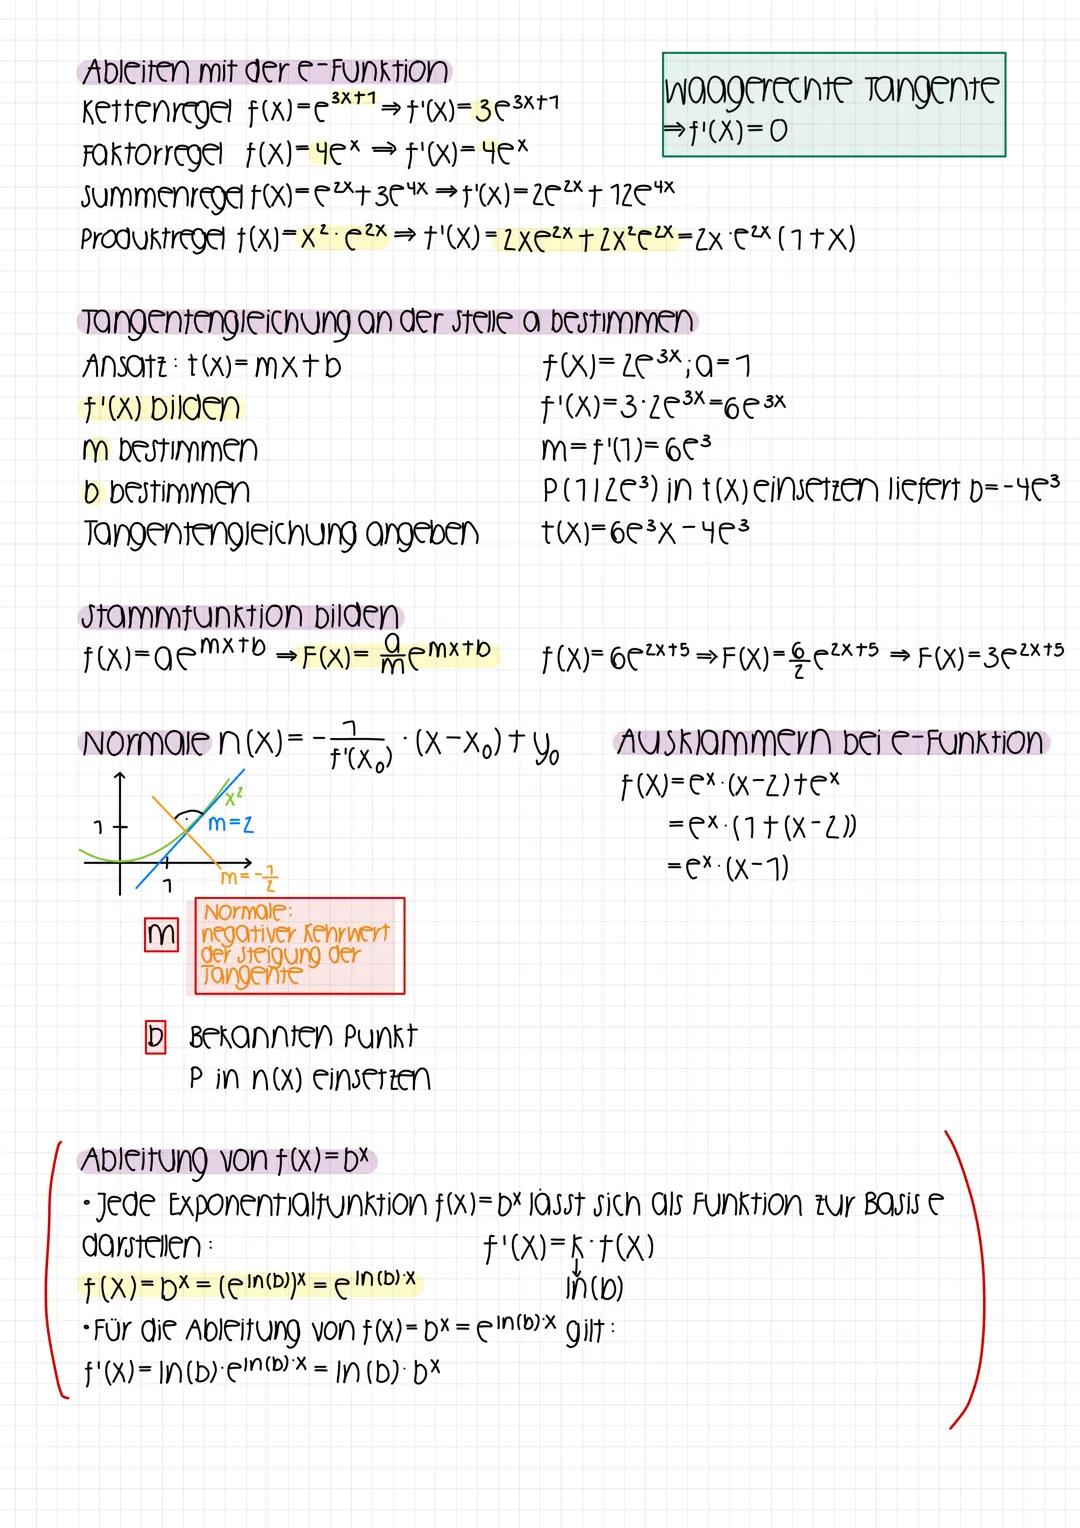 Ableiten mit der e-Funktion
Kettenregel f(x)=e^{3x+1} ⇒ f'(x)=3e^{3x+1}
Faktorregel f(x)=4e^x ⇒ f'(x)=4e^x
Summenregel f(x)=e^{2x}+3e^{4x} ⇒ f'(x)=2e^{2x}+12e^{4x}
Produktregel f(x)=x²·e^{2x} ⇒ f'(x)=2xe^{2x}+2x²e^{2x}=2x·e^{2x}(1+x)
waagerechte Tangente
⇒ f'(x)=0
Tangentengleichung an der Stelle a bestimmen
Ansatz: t(x)=mx+b f(x)=2e^{3x}; a=1
f'(x) bilden f'(x)=3·2e^{3x}=6e^{3x}
m bestimmen m=f'(1)=6e³
b bestimmen P(1|2e³) in t(x) einsetzen liefert b=-4e³
Tangentengleichung angeben t(x)=6e³x-4e³
Stammfunktion bilden
f(x)=ae^{mx+b} → F(x)=\frac{a}{m}e^{mx+b} f(x)=6e^{2x+5} ⇒ F(x)=\frac{6}{2}e^{2x+5} ⇒ F(x)=3e^{2x+5}
Normale n(x)=-\frac{1}{f'(x₀)}·(x-x₀)+y₀
x²
m=2
1
1
m=-\frac{1}{2}
m
Normale:
negativer Kehrwert
der Steigung der
Tangente
b Bekannten Punkt
P in n(x) einsetzen
Ausklammern bei e-Funktion
f(x)=e^x·(x-2)+e^x
=e^x·(1+(x-2))
=e^x·(x-1)
Ableitung von f(x)=b^x
• Jede Exponentialfunktion f(x)=b^x lässt sich als Funktion zur Basis e
darstellen: f'(x)=k·f(x)
↓
f(x)=b^x=(e^{ln(b)})^x=e^{ln(b)·x} ln(b)
• Für die Ableitung von f(x)=b^x=e^{ln(b)·x} gilt:
f'(x)=ln(b)·e^{ln(b)·x}=ln(b)·b^x